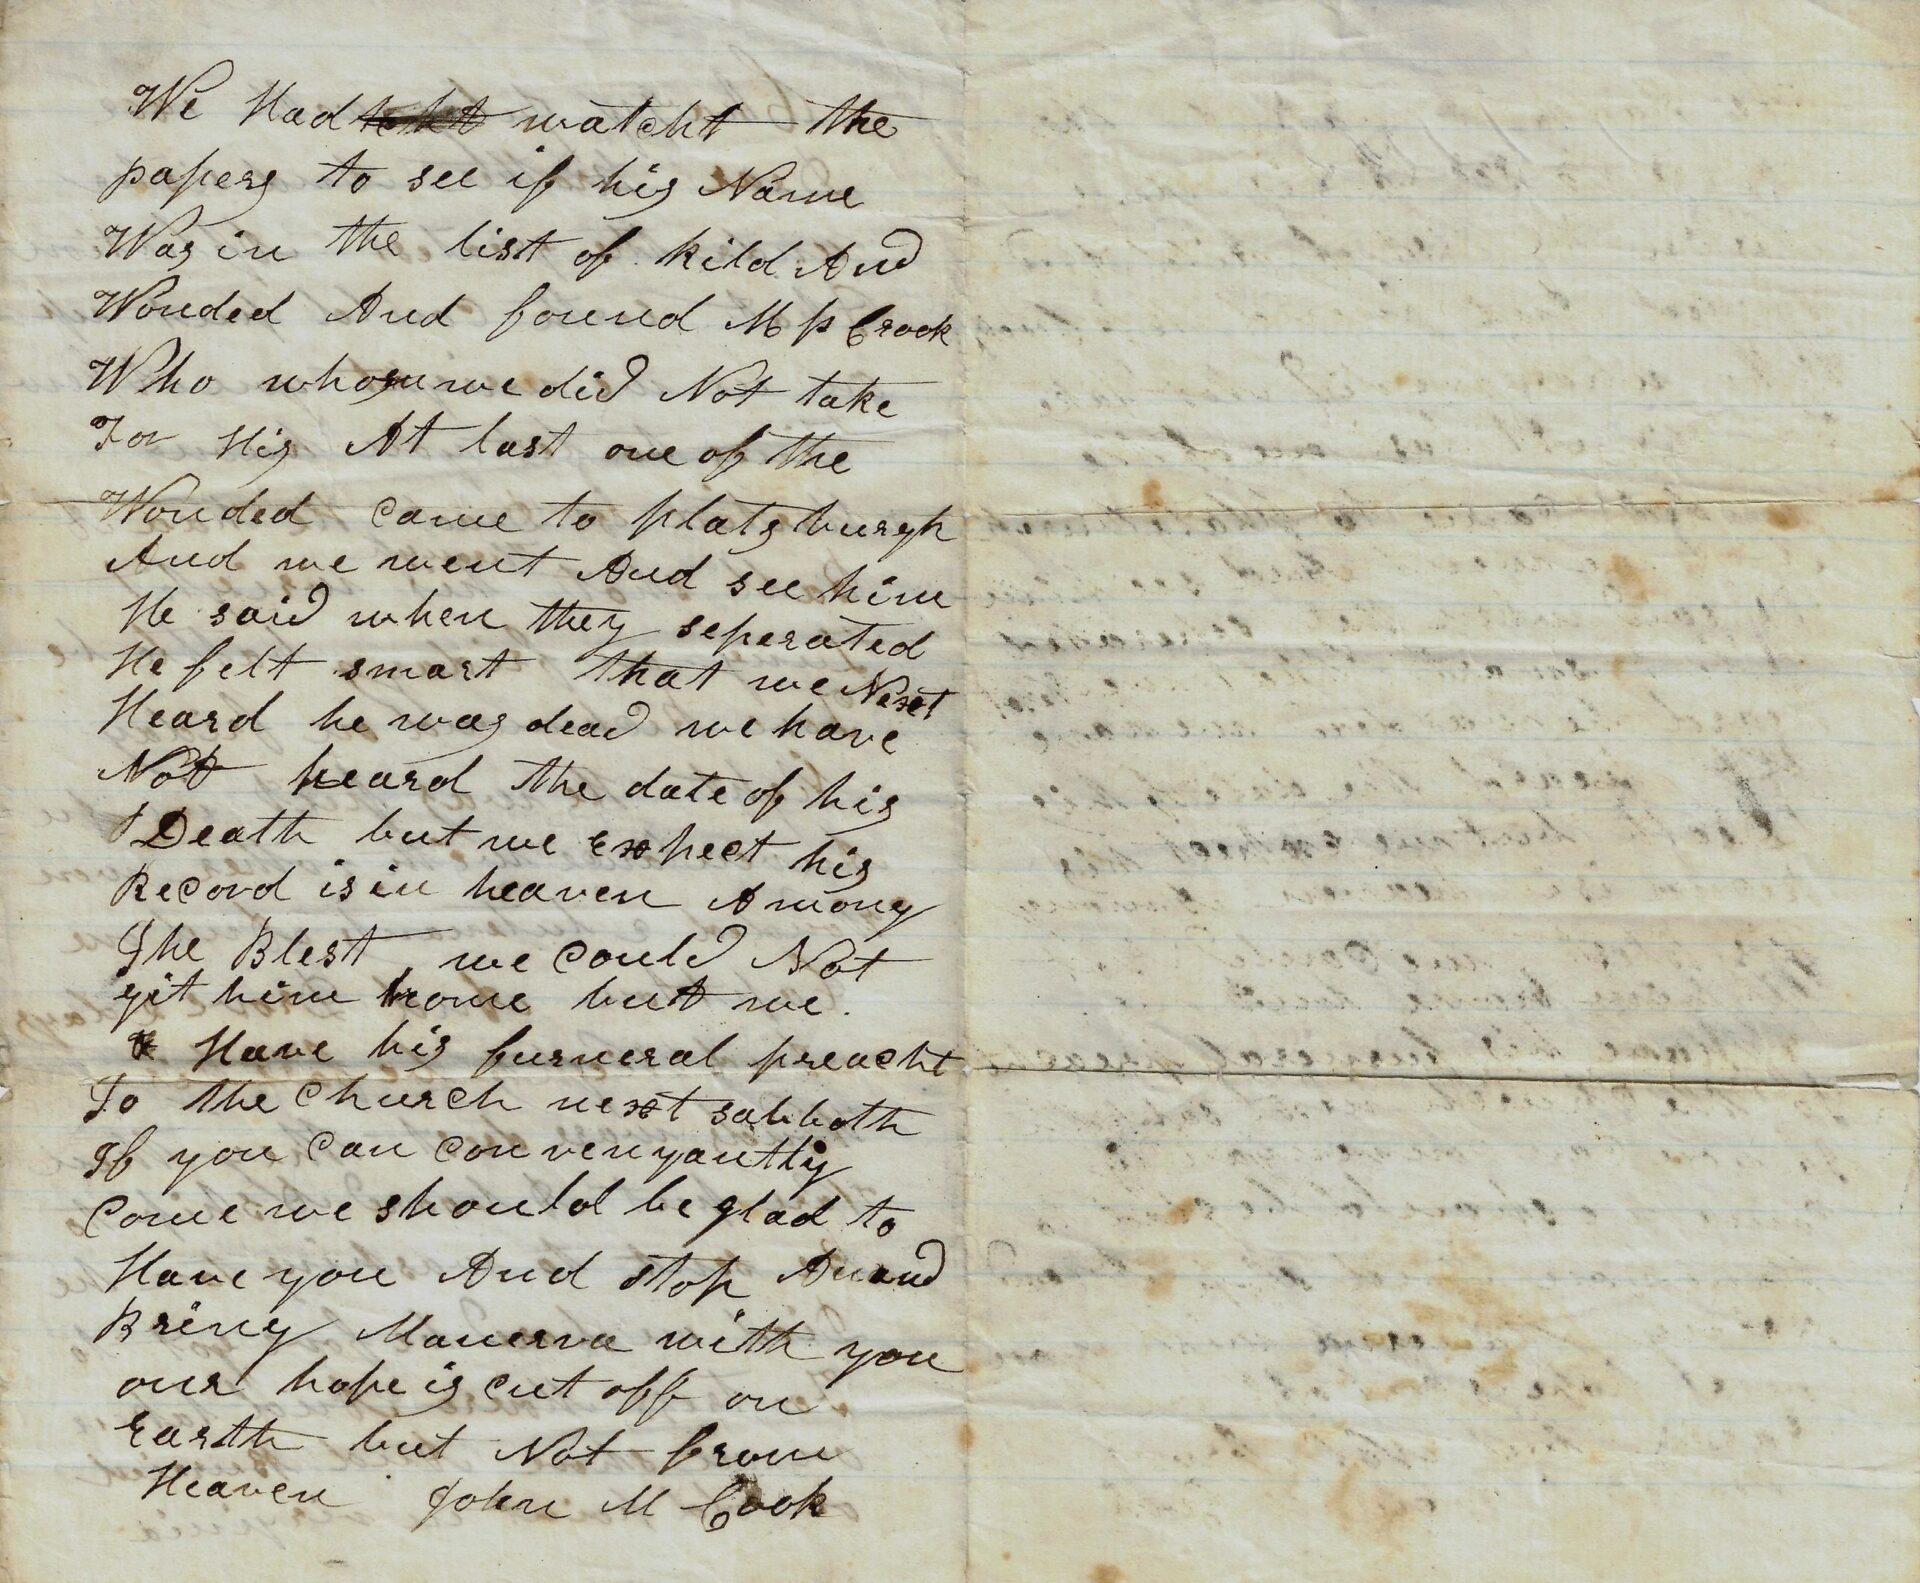 We Had watcht the
papers to see if his Name
Was in the list of kild And
Wonded And found M P Crook
Who whom we did Not take
For His At last one of the
Wonded came to platsburgh
And we went And see him
He said when they seperated
He felt smart that we Next
Heard he was dead we have
Not heard the date of his
Death but we Expect his
Record is in heaven Among
The Blest we could Not
git him home but we
Have his furneral preacht
To the church next sabboth
If you can convenyantly
Come we should be glad to
Have you And stop And
Bring Manerva with you
our hope is cut off on
Earth but Not from
Heaven John M Cook